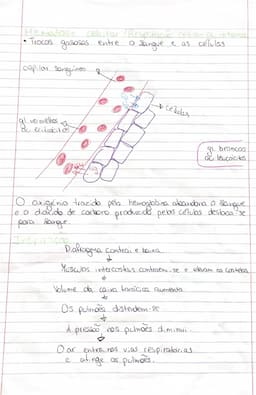 Hematose celular /Respiração celular ou interna
• Trocas gasosas entre o sangue e as células
capilar sanguíneo
células
gl. vermelhos
ou eritrócitos
gl. brancos
ou leucócitos
O oxigénio trazido pela hemoglobina abandona o sangue
e o dióxido de carbono produzido pelas células desloca-se
para sangue.
Inspiração
Diafragma contrai e baixa
Músculos intercostais contraem-se e elevam as costelas
Volume da caixa torácica aumenta
Os pulmões distendem-se
A pressão nos pulmões diminui
O ar entra nas vias respiratórias
e atinge os pulmões.